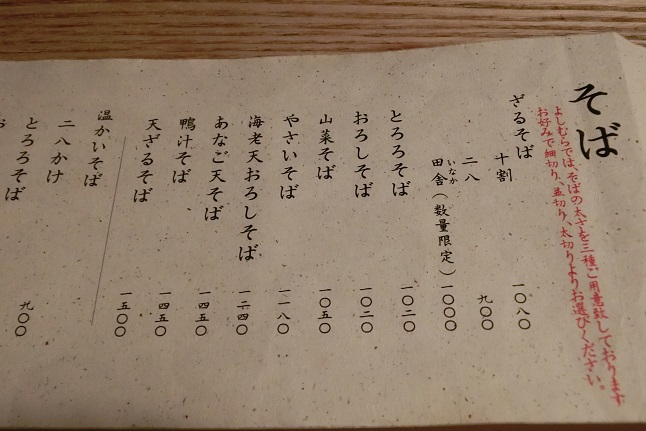 そば
よしむらでは、そばの太さを三種ご用意致しております
お好みで細切り、並切り、太切りよりお選びください。
ざるそば
十割 一〇八〇
二八 九〇〇
田舎（数量限定） 一〇〇〇
いなか
とろろそば 一〇二〇
おろしそば 一〇二〇
山菜そば 一〇五〇
やさいそば 一一八〇
海老天おろしそば 一二四〇
あなご天そば 一四五〇
鴨汁そば 一四五〇
天ざるそば 一五〇〇
温かいそば
二八かけ 九〇〇
とろろそば